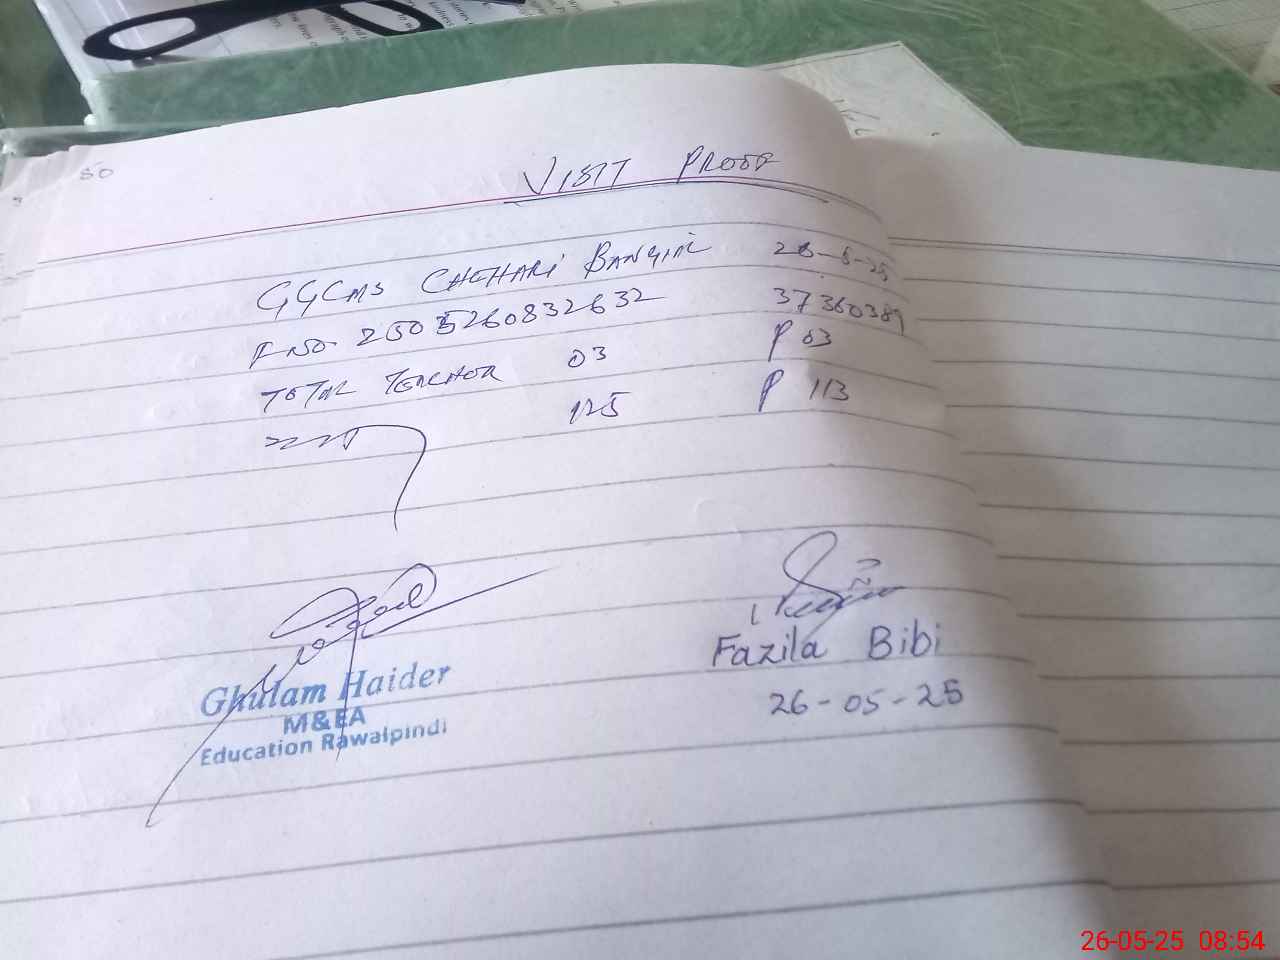 50
VISIT PROOF
GGCMS CHEHARI BANGIAL 26-5-25
F NO. 2505260832632 37360389
TOTAL TEACHER 03 P 03
125 P 113
Fazila Bibi
26-05-25
Ghulam Haider
M&EA
Education Rawalpindi
26-05-25 08:54